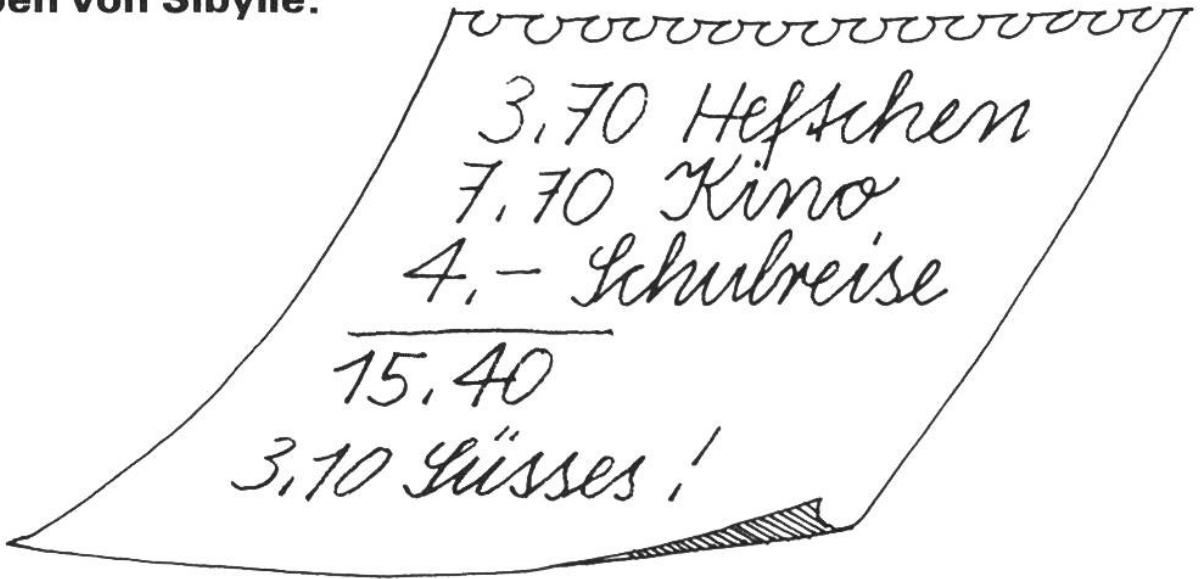 von Sibylle:
3.70 Heftchen
7.70 Kino
4.– Schulreise
15.40
3.10 Süsses!